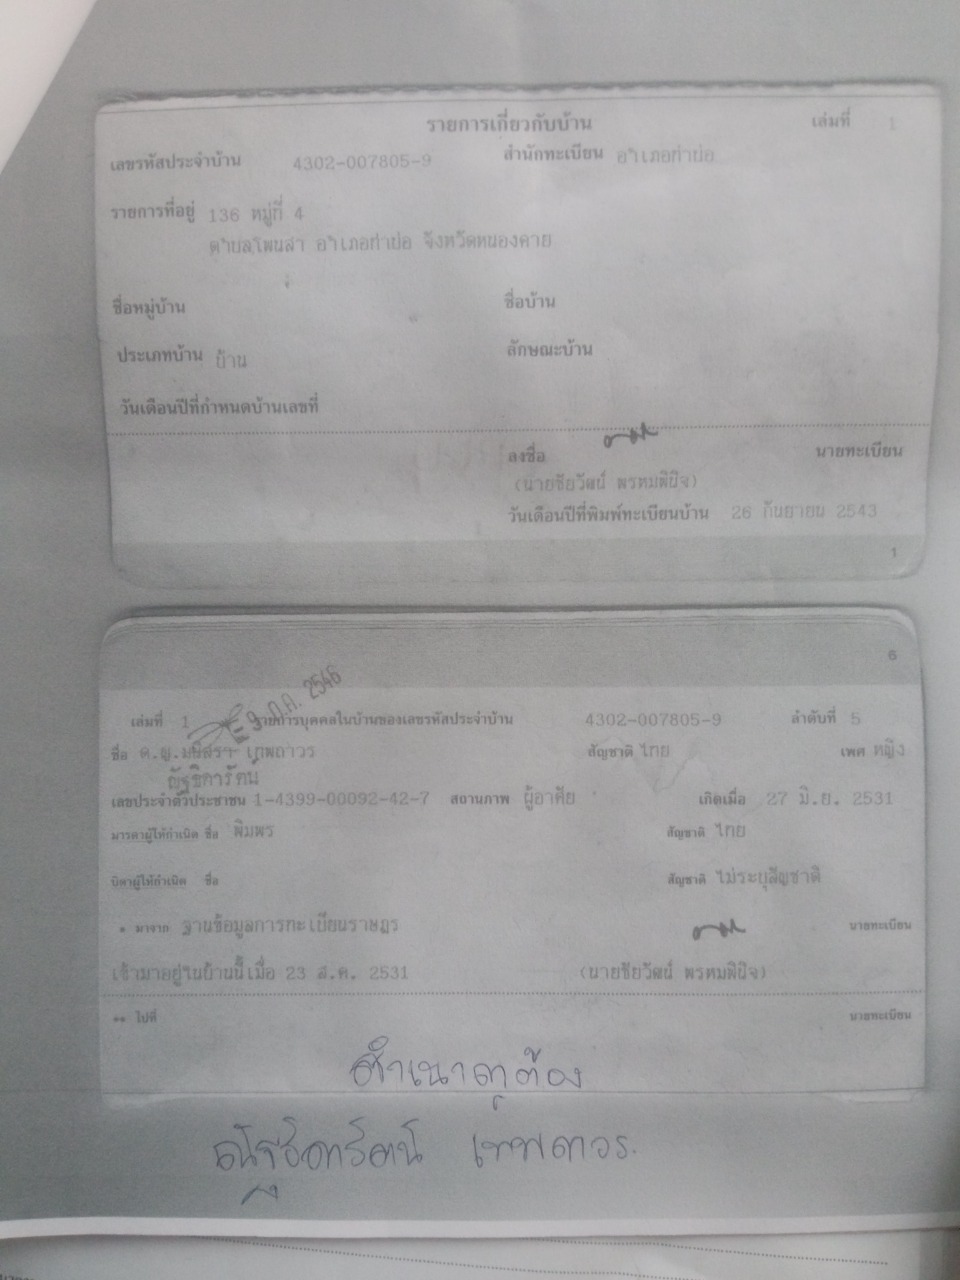 รายการเกี่ยวกับบ้าน เล่มที่ 1
เลขรหัสประจำบ้าน 4302-007805-9 สำนักทะเบียน อำเภอท่าบ่อ
รายการที่อยู่ 136 หมู่ที่ 4
ตำบลโพนสา อำเภอท่าบ่อ จังหวัดหนองคาย
ชื่อหมู่บ้าน ชื่อบ้าน
ประเภทบ้าน บ้าน ลักษณะบ้าน
วันเดือนปีที่กำหนดบ้านเลขที่
ลงชื่อ นายทะเบียน
(นายชัยวัฒน์ พรหมพินิจ)
วันเดือนปีที่พิมพ์ทะเบียนบ้าน 26 กันยายน 2543
1
6
9 ก.ค. 2546
เล่มที่ 1 รายการบุคคลในบ้านของเลขรหัสประจำบ้าน 4302-007805-9 ลำดับที่ 5
ชื่อ ด.ญ. เทพถาวร สัญชาติ ไทย เพศ หญิง
ณัฐธิดารัตน์
เลขประจำตัวประชาชน 1-4399-00092-42-7 สถานภาพ ผู้อาศัย เกิดเมื่อ 27 มิ.ย. 2531
มารดาผู้ให้กำเนิด ชื่อ พิมพร สัญชาติ ไทย
บิดาผู้ให้กำเนิด ชื่อ สัญชาติ ไม่ระบุสัญชาติ
* มาจาก ฐานข้อมูลการทะเบียนราษฎร นายทะเบียน
เข้ามาอยู่ในบ้านนี้เมื่อ 23 ส.ค. 2531 (นายชัยวัฒน์ พรหมพินิจ)
** ไปที่ นายทะเบียน
สำเนาถูกต้อง
ณัฐธิดารัตน์ เทพถาวร